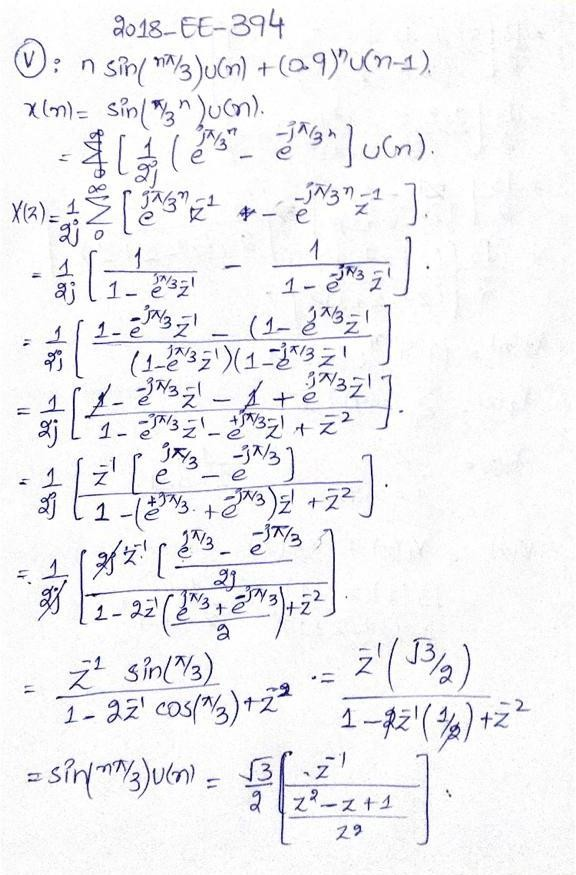 2018-EE-394
(V): n sin(nπ/3)u(n) + (0.9)ⁿu(n-1).
x(n) = sin(π/3 n)u(n).
= ∑₀^∞ [1/2j (e^{jπ/3 n} - e^{-jπ/3 n}] u(n).
X(z) = 1/2j ∑₀^∞ [e^{jπ/3 n} z^{-1} - e^{-jπ/3 n} z^{-1}].
= 1/2j [1/(1 - e^{jπ/3} z^{-1}) - 1/(1 - e^{-jπ/3} z^{-1})].
= 1/2j [(1 - e^{-jπ/3} z^{-1} - (1 - e^{jπ/3} z^{-1}) / ((1 - e^{jπ/3} z^{-1})(1 - e^{-jπ/3} z^{-1})]
= 1/2j [(1 - e^{-jπ/3} z^{-1} - 1 + e^{jπ/3} z^{-1}) / (1 - e^{-jπ/3} z^{-1} - e^{+jπ/3} z^{-1} + z^{-2})].
= 1/2j [z^{-1} [e^{jπ/3} - e^{-jπ/3}] / (1 - (e^{+jπ/3} + e^{-jπ/3}) z^{-1} + z^{-2})].
= 1/2j [2j z^{-1} [(e^{jπ/3} - e^{-jπ/3})/2j] / (1 - 2z^{-1} ((e^{jπ/3} + e^{-jπ/3})/2) + z^{-2})].
= z^{-1} sin(π/3) / (1 - 2z^{-1} cos(π/3) + z^{-2}) = z^{-1}(√3/2) / (1 - 2z^{-1}(1/2) + z^{-2})
= sin(nπ/3)u(n) = √3/2 [z^{-1} / ((z² - z + 1)/z²)].